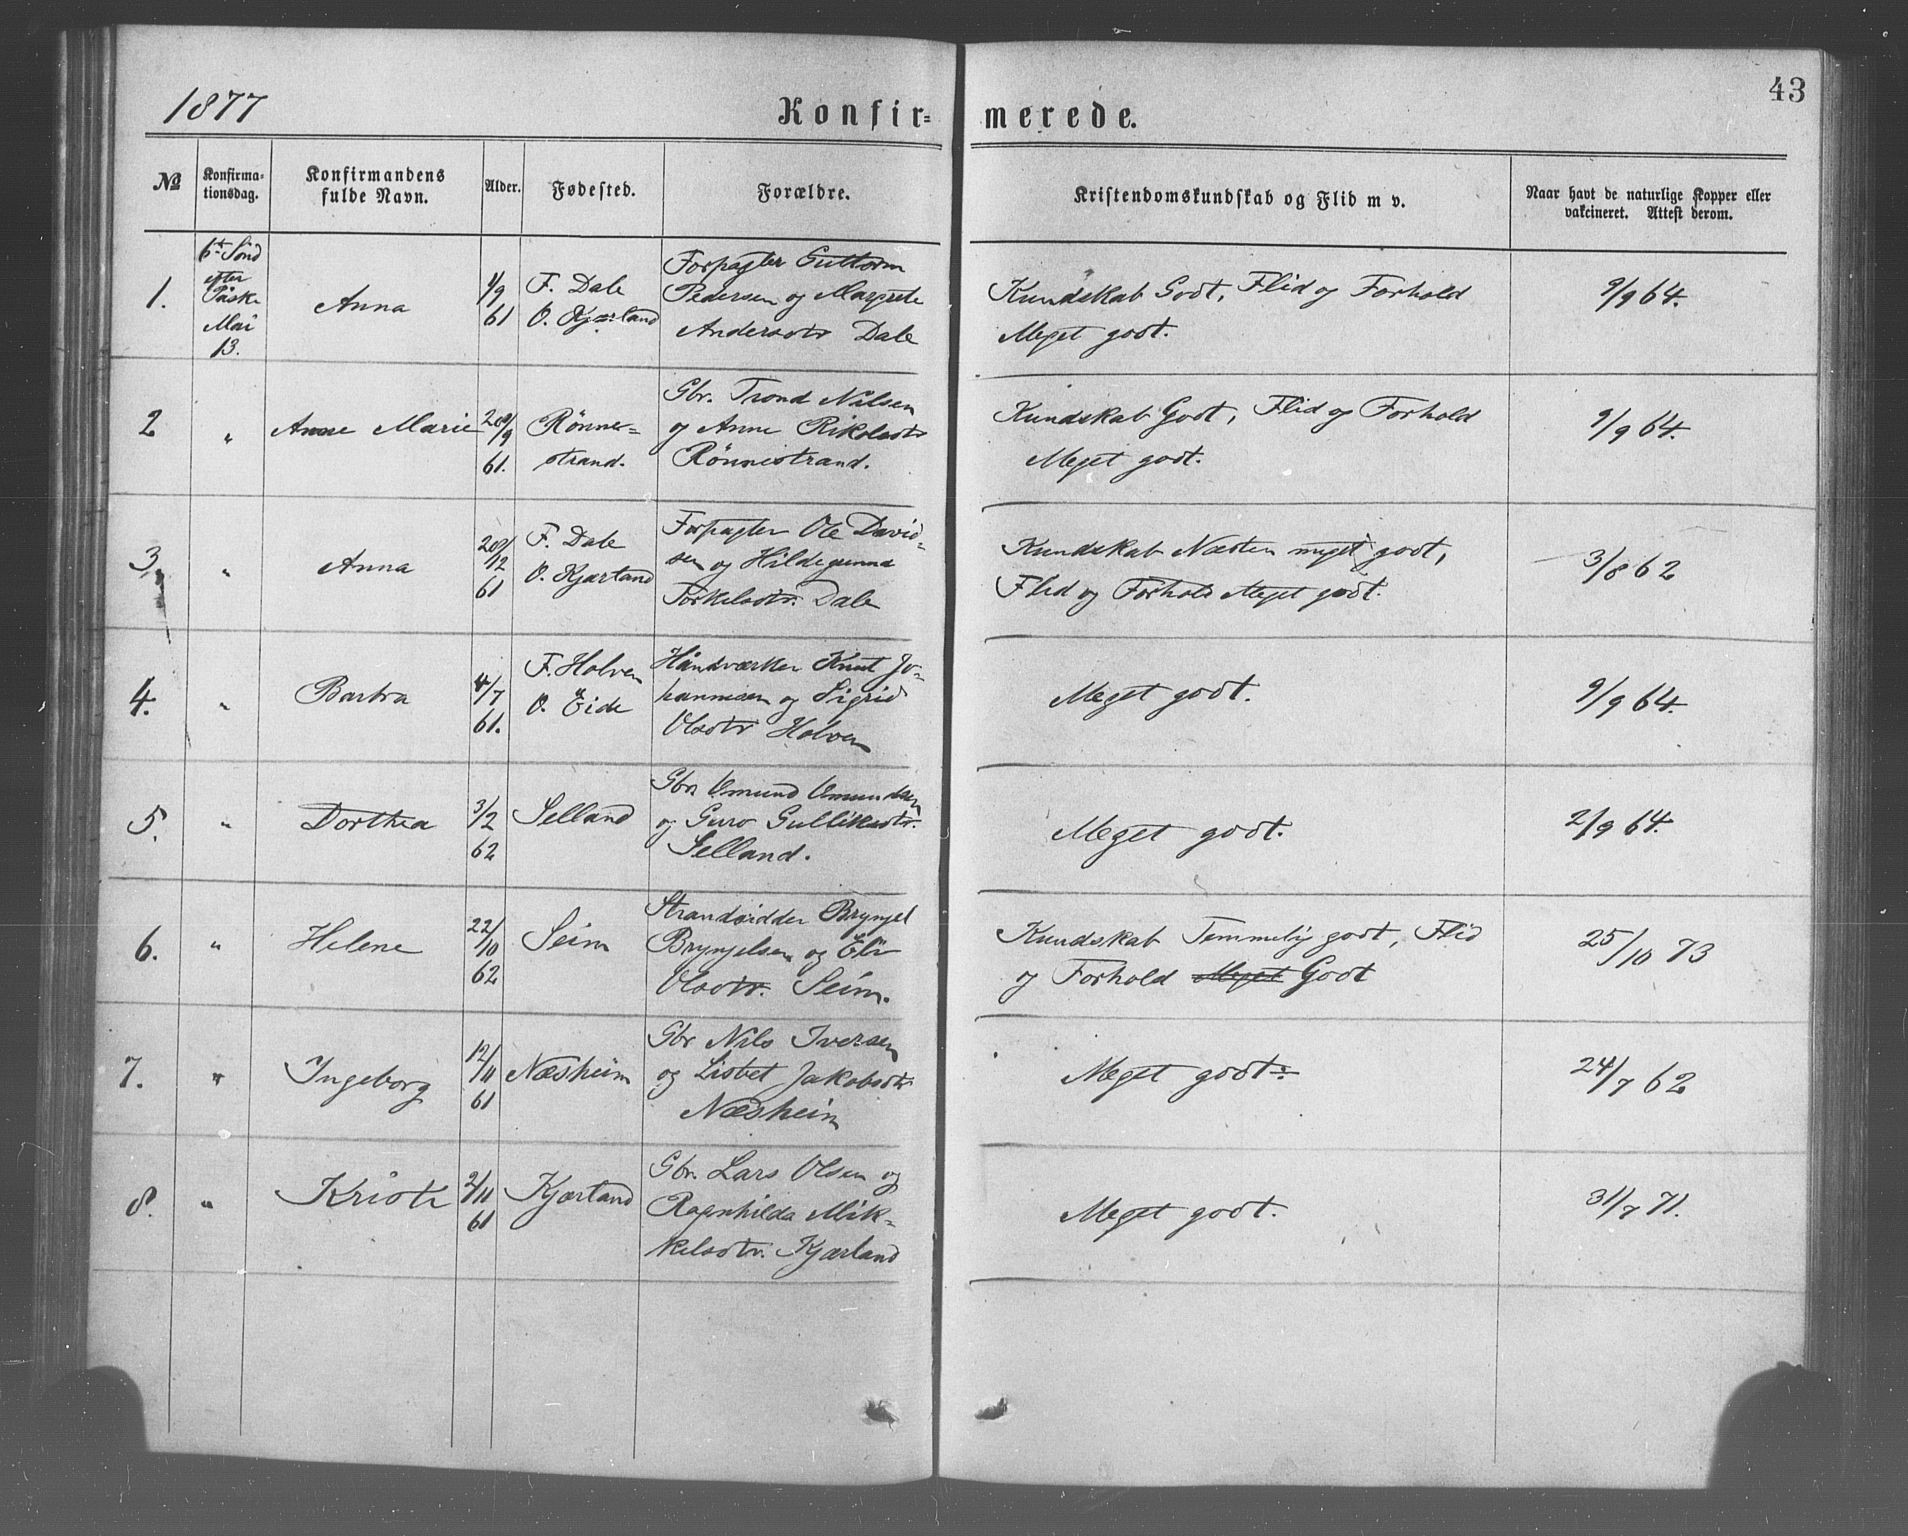 1877
Konfir=
merede.
43
№
Konfirma-
tionsdag.
Konfirmandens
fulde Navn.
Alder.
Fødested.
Forældre.
Kristendomskundskab og Flid m v.
Naar havt de naturlige Kopper eller
vakcineret. Attest derom.
1.
6te Sønd
efter
Påske
Mai
13.
Anna
1/9
61
F. Dale
O. Kjærland
Forpagter Guttorm
Pedersen og Margrete
Andersdtr Dale
Kundskab Godt, Flid og Forhold
Meget godt.
9/9 64.
2
"
Anne Marie
28/9
61.
Rønne=
strand.
Gbr. Trond Nilsen
og Anne Rikolsdtr
Rønnestrand.
Kundskab Godt, Flid og Forhold
Meget godt.
9/9 64.
3.
"
Anna
20/12
61
F. Dale
O. Kjærland
Forpagter Ole David=
sen og Hildegunna
Torkelsdtr. Dale
Kundskab Næsten meget godt,
Flid og Forhold Meget godt.
3/8 62
4.
"
Barbra
4/7
61.
F. Holven
O. Eide
Håndværker Knut Jo=
hannesen og Sigrid
Olsdtr Holven
Meget godt.
9/9 64.
5.
"
Dorthea
3/2
62
Selland
Gbr. Omund Omundsen
og Guro Gulliksdtr.
Selland.
Meget godt.
2/9 64.
6.
"
Helene
22/10
62
Seim
Strandsidder Brynjel
Brynjelsen og Eli
Olsdtr. Seim.
Kundskab Temmelig godt, Flid
og Forhold Meget Godt
25/10 73
7.
"
Ingeborg
12/11
61
Næsheim
Gbr Nils Iversen
og Lisbet Jakobsdtr
Næsheim
Meget godt.
24/7 62
8.
"
Kristi
2/11
61
Kjærland
Gbr. Lars Olsen og
Ragnhilda Mik=
kelsdtr. Kjærland
Meget godt.
31/7 71.